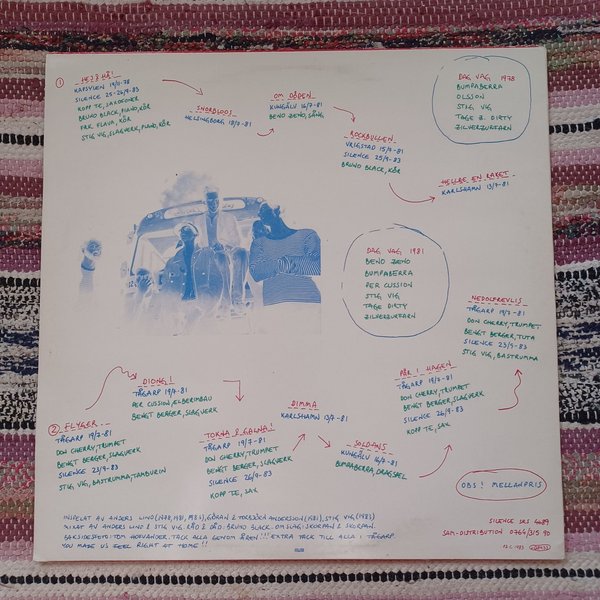 ① HEJ & HÅ!
KAFSVEEN 19/11-78
SILENCE 25-26/9-83
KOPP TE, SAXOFONER
BRUNO BLACK, PIANO, KÖR
FRK. FLAVA, KÖR
STIG VIG, SLAGVERK, PIANO, KÖR
SNORDLOOS
HELSINGBORG 18/7-81
OM DÖDEN
KUNGÄLV 16/7-81
BENO ZENO, SÅNG
ROCKBULLEN
VRIGSTAD 15/7-81
SILENCE 25/9-83
BRUNO BLACK, KÖR
HELLRE EN RAKET
KARLSHAMN 13/7-81
DAG VAG, 1978
BUMPABERRA
OLSSON
STIG VIG
TAGE Z. DIRTY
ZILVERZURFARN
DAG VAG 1981
BENO ZENO
BUMPABERRA
PER CUSSION
STIG VIG
TAGE DIRTY
ZILVERZURFARN
② FLYGER
TÅGARP 19/7-81
DON CHERRY, TRUMPET
BENGT BERGER, SLAGVERK
SILENCE 25/9-83
STIG VIG, BASTRUMMA, TAMBURIN
DIONG!
TÅGARP 19/7-81
PER CUSSION, ELBERIMBAU
BENGT BERGER, SLAGVERK
TOKNA & GALNA!
TÅGARP 19/7-81
DON CHERRY, TRUMPET
BENGT BERGER, SLAGVERK
SILENCE 26/9-83
KOPP TE, SAX
DIMMA
KARLSHAMN 13/7-81
SOLDANS
KUNGÄLV 16/7-81
BUMPABERRA, DRAGSPEL
PÅR I HAGEN
TÅGARP 19/7-81
DON CHERRY, TRUMPET
BENGT BERGER, SLAGVERK
SILENCE 26/9-83
KOPP TE, SAX
NEDOLFREVLIS
TÅGARP 19/7-81
DON CHERRY, TRUMPET
BENGT BERGER, TUTA
SILENCE 25/9-83
STIG VIG, BASTRUMMA
OBS! MELLANPRIS
INSPELAT AV ANDERS LIND (1978, 1981, 1983), GÖRAN & TORBJÖRN ANDERSSON (1981), STIG VIG (1983)
MIXAT AV ANDERS LIND & STIG VIG. RÅD & DÅD: BRUNO BLACK. OMSLAG: SKORPAN & SKORPAN.
BAKSIDESFOTO: TOM HOFVANDER. TACK ALLA GENOM ÅREN!!! EXTRA TACK TILL ALLA I TÅGARP.
YOU MADE US FEEL RIGHT AT HOME!!
SILENCE SRS 4689
SAM-DISTRIBUTION 0764/315 90
1983